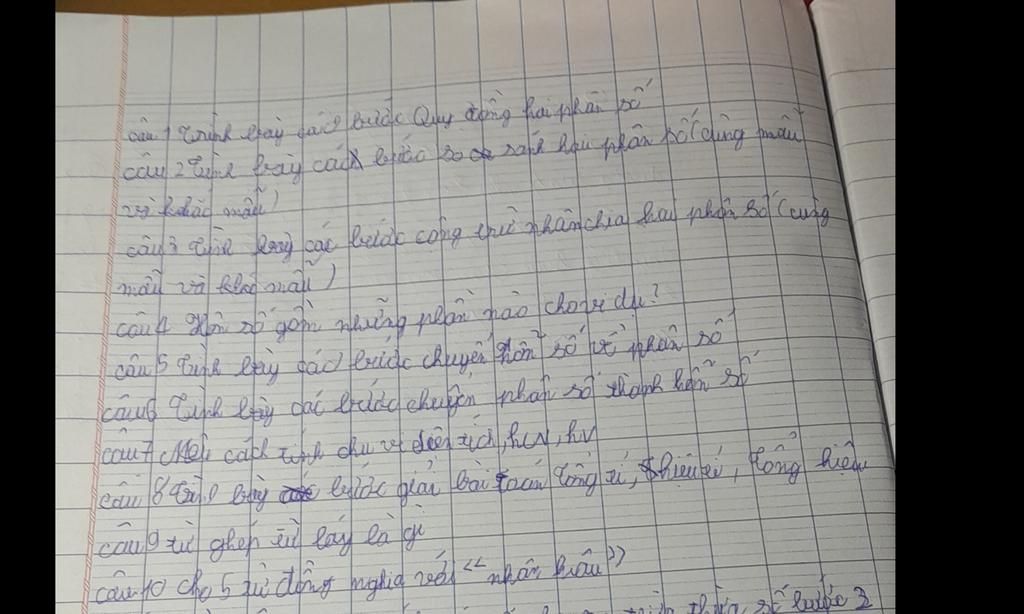 câu 1 Trình bày các bước Quy đồng hai phân số
câu 2 Trình bày các bước so sánh hai phân số (cùng mẫu
và khác mẫu)
câu 3 Trình bày các bước cộng trừ nhân chia hai phân số (cùng
mẫu và khác mẫu)
câu 4 Hỗn số gồm những phần nào cho ví dụ?
câu 5 Trình bày các bước chuyển hỗn số về phân số
câu 6 Trình bày các bước chuyển phân số thành hỗn số
câu 7 Nêu cách tính chu vi diện tích, hcN, hv
câu 8 Trình bày bước giải bài toán Tổng tỉ, hiệu tỉ, tổng hiệu
câu 9 từ ghép từ láy là gì
câu 10 cho 5 từ đồng nghĩa với "nhân hậu"
số bước 3